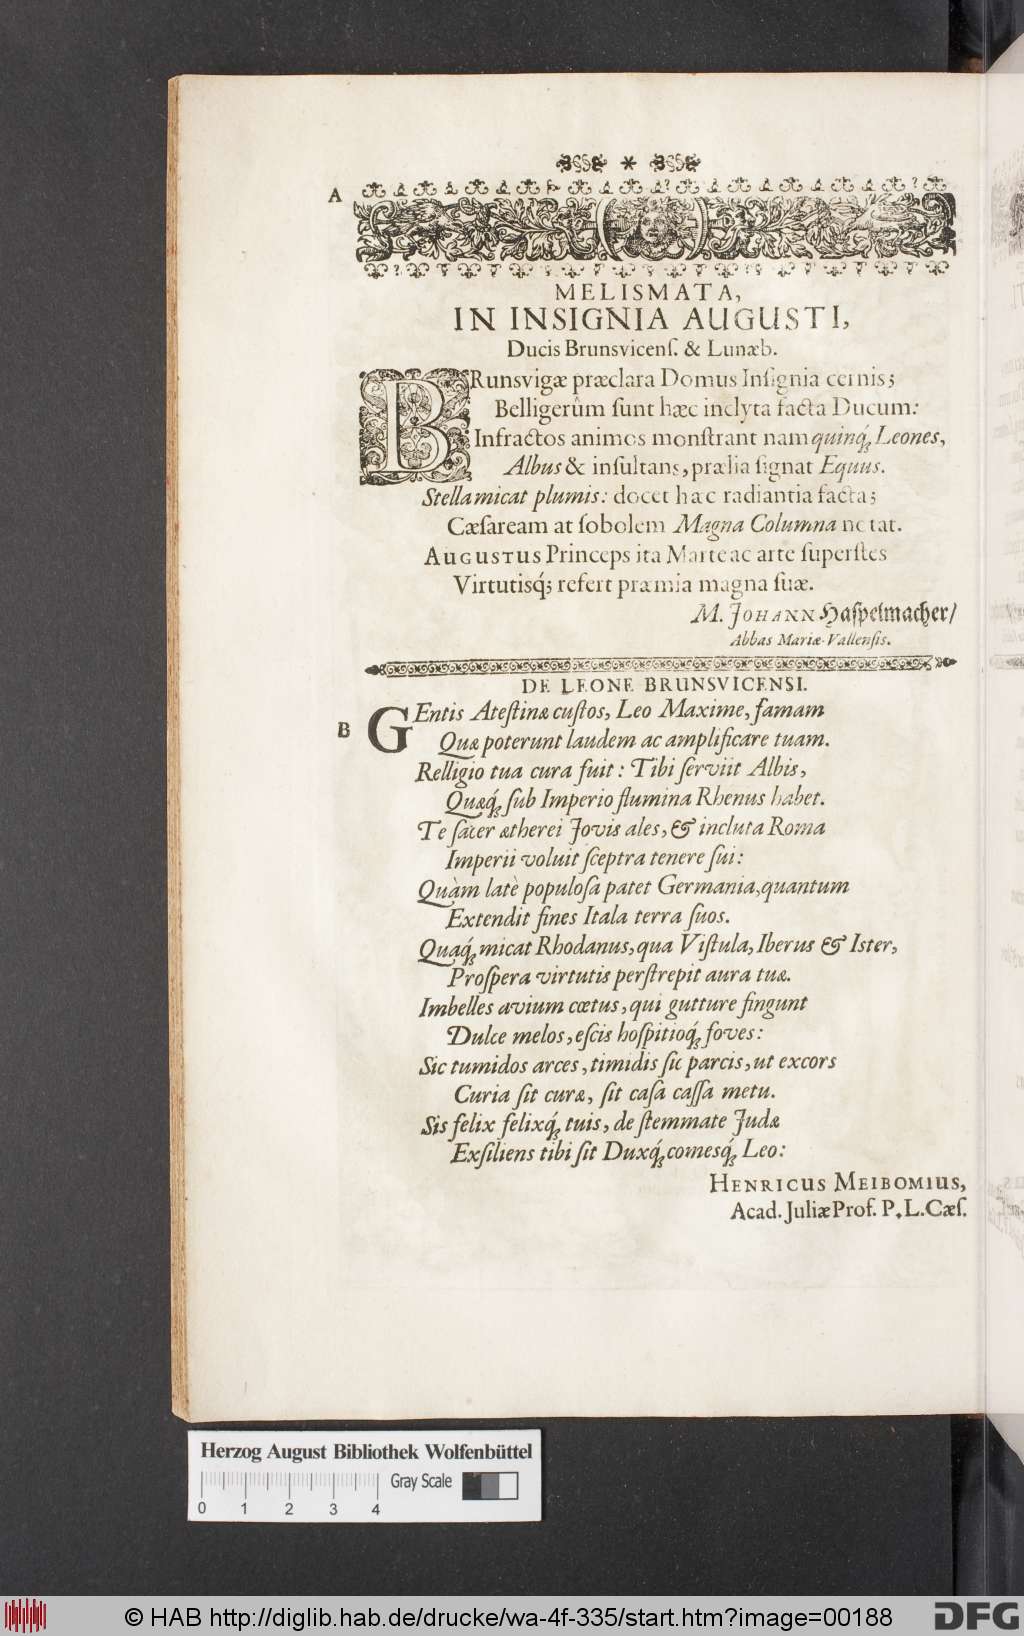 A
MELISMATA,
IN INSIGNIA AUGUSTI,
Ducis Brunsvicenſ. & Lunæb.
BRunsvigæ præclara Domus Inſignia cernis;
Belligerûm ſunt hæc inclyta facta Ducum:
Infractos animos monſtrant nam quinq́; Leones,
Albus & inſultans, prælia ſignat Equus.
Stella micat plumis: docet hæc radiantia facta;
Cæſaream at ſobolem Magna Columna notat.
AUGUSTUS Princeps ita Marte ac arte ſuperſtes
Virtutisq́; refert præmia magna ſuæ.
M. JOHANN Haſpelmacher/
Abbas Mariæ-Vallenſis.
DE LEONE BRUNSVICENSI.
B
GEntis Ateſtinæ cuſtos, Leo Maxime, famam
Quæ poterunt laudem ac amplificare tuam.
Relligio tua cura fuit: Tibi ſerviit Albis,
Quæq́; ſub Imperio flumina Rhenus habet.
Te ſacer ætherei Jovis ales, & incluta Roma
Imperii voluit ſceptra tenere ſui:
Quàm latè populoſa patet Germania, quantum
Extendit fines Itala terra ſuos.
Quaq́; micat Rhodanus, qua Viſtula, Iberus & Iſter,
Proſpera virtutis perſtrepit aura tuæ.
Imbelles avium cœtus, qui gutture fingunt
Dulce melos, eſcis hoſpitioq́; foves:
Sic tumidos arces, timidis ſic parcis, ut excors
Curia ſit curæ, ſit caſa caſſa metu.
Sis felix felixq́; tuis, de ſtemmate Judæ
Exſiliens tibi ſit Duxq́; comesq́; Leo:
HENRICUS MEIBOMIUS,
Acad. Juliæ Prof. P. L. Cæſ.
Herzog August Bibliothek Wolfenbüttel
Gray Scale
0 1 2 3 4
© HAB http://diglib.hab.de/drucke/wa-4f-335/start.htm?image=00188
DFG